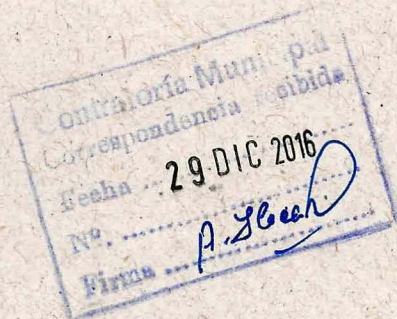 Contraloría Municipal
Correspondencia recibida
Fecha ... 29 DIC 2016
Nº. ...
Firma ...